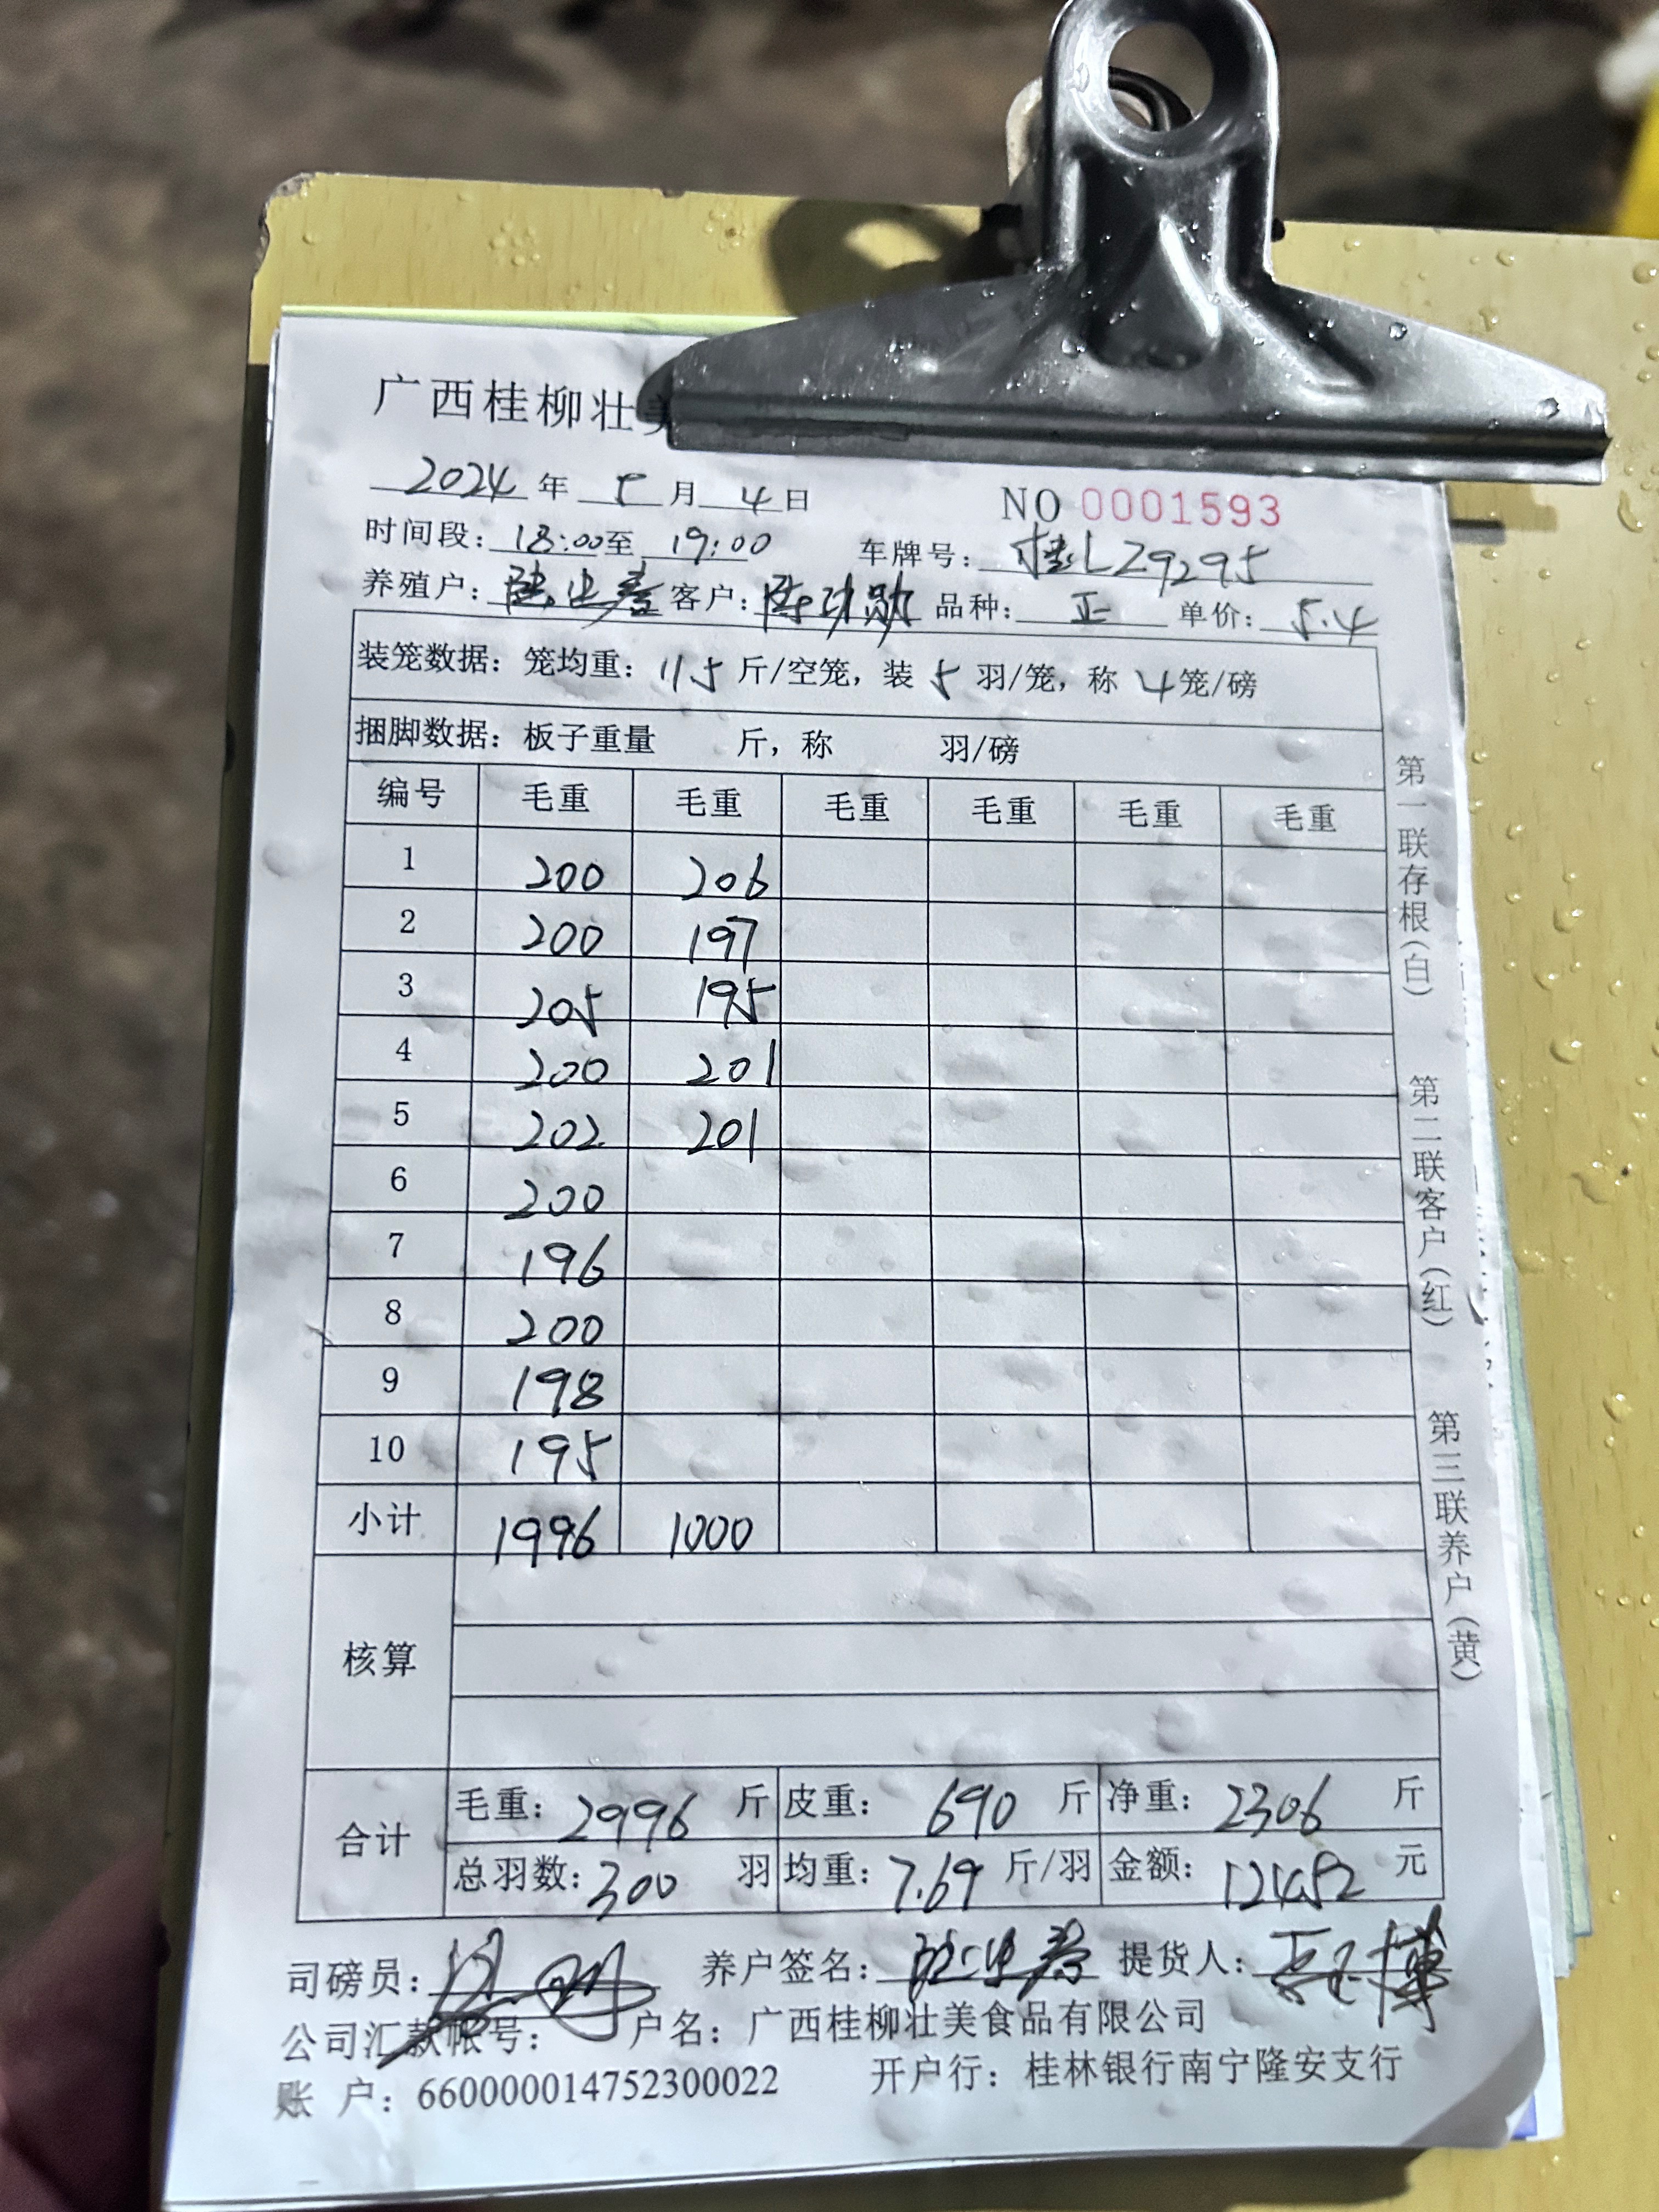 广西桂柳壮美
2024年5月4日 NO 0001593
时间段：18:00至19:00 车牌号：桂LZ9295
养殖户： 客户：陈功勋 品种：正 单价：5.4
装笼数据：笼均重：11.5斤/空笼，装5羽/笼，称4笼/磅
捆脚数据：板子重量 斤，称 羽/磅
编号 毛重 毛重 毛重 毛重 毛重 毛重
1 200 206
2 200 197
3 205 195
4 200 201
5 202 201
6 200
7 196
8 200
9 198
10 195
小计 1996 1000
核算
合计
毛重：2996斤 皮重：690斤 净重：2306斤
总羽数：300羽 均重：7.69斤/羽 金额：12452元
司磅员： 养户签名： 提货人：
公司汇款帐号： 户名：广西桂柳壮美食品有限公司
账 户：660000014752300022 开户行：桂林银行南宁隆安支行
第一联存根（白） 第二联客户（红） 第三联养户（黄）